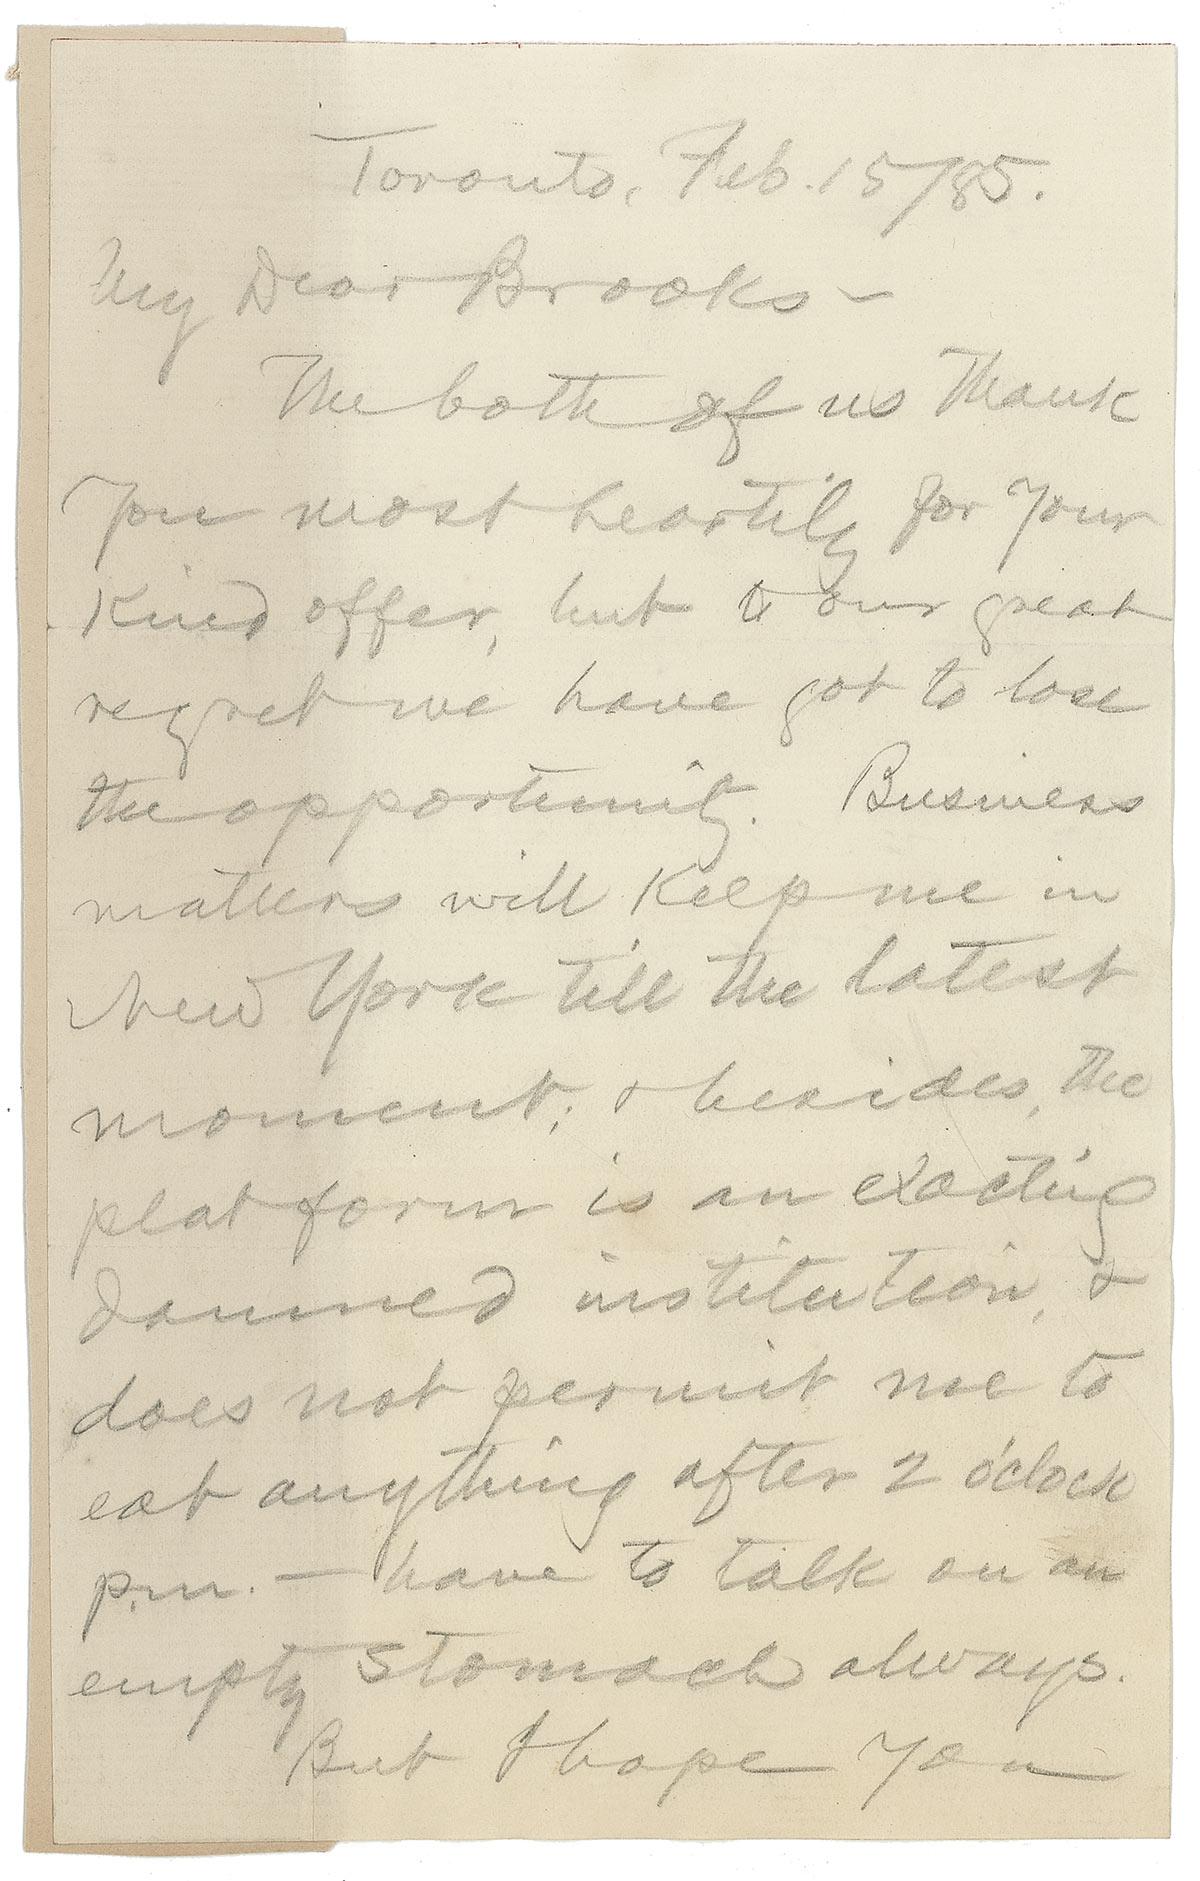 Toronto, Feb. 15/85.
My Dear Brooks —
The both of us thank
you most heartily for your
kind offer, but to our great
regret we have got to lose
the opportunity. Business
matters will keep me in
New York till the latest
moment; & besides, the
platform is an exacting
damned institution, &
does not permit me to
eat anything after 2 o'clock
p.m. — have to talk on an
empty stomach always.
But I hope you